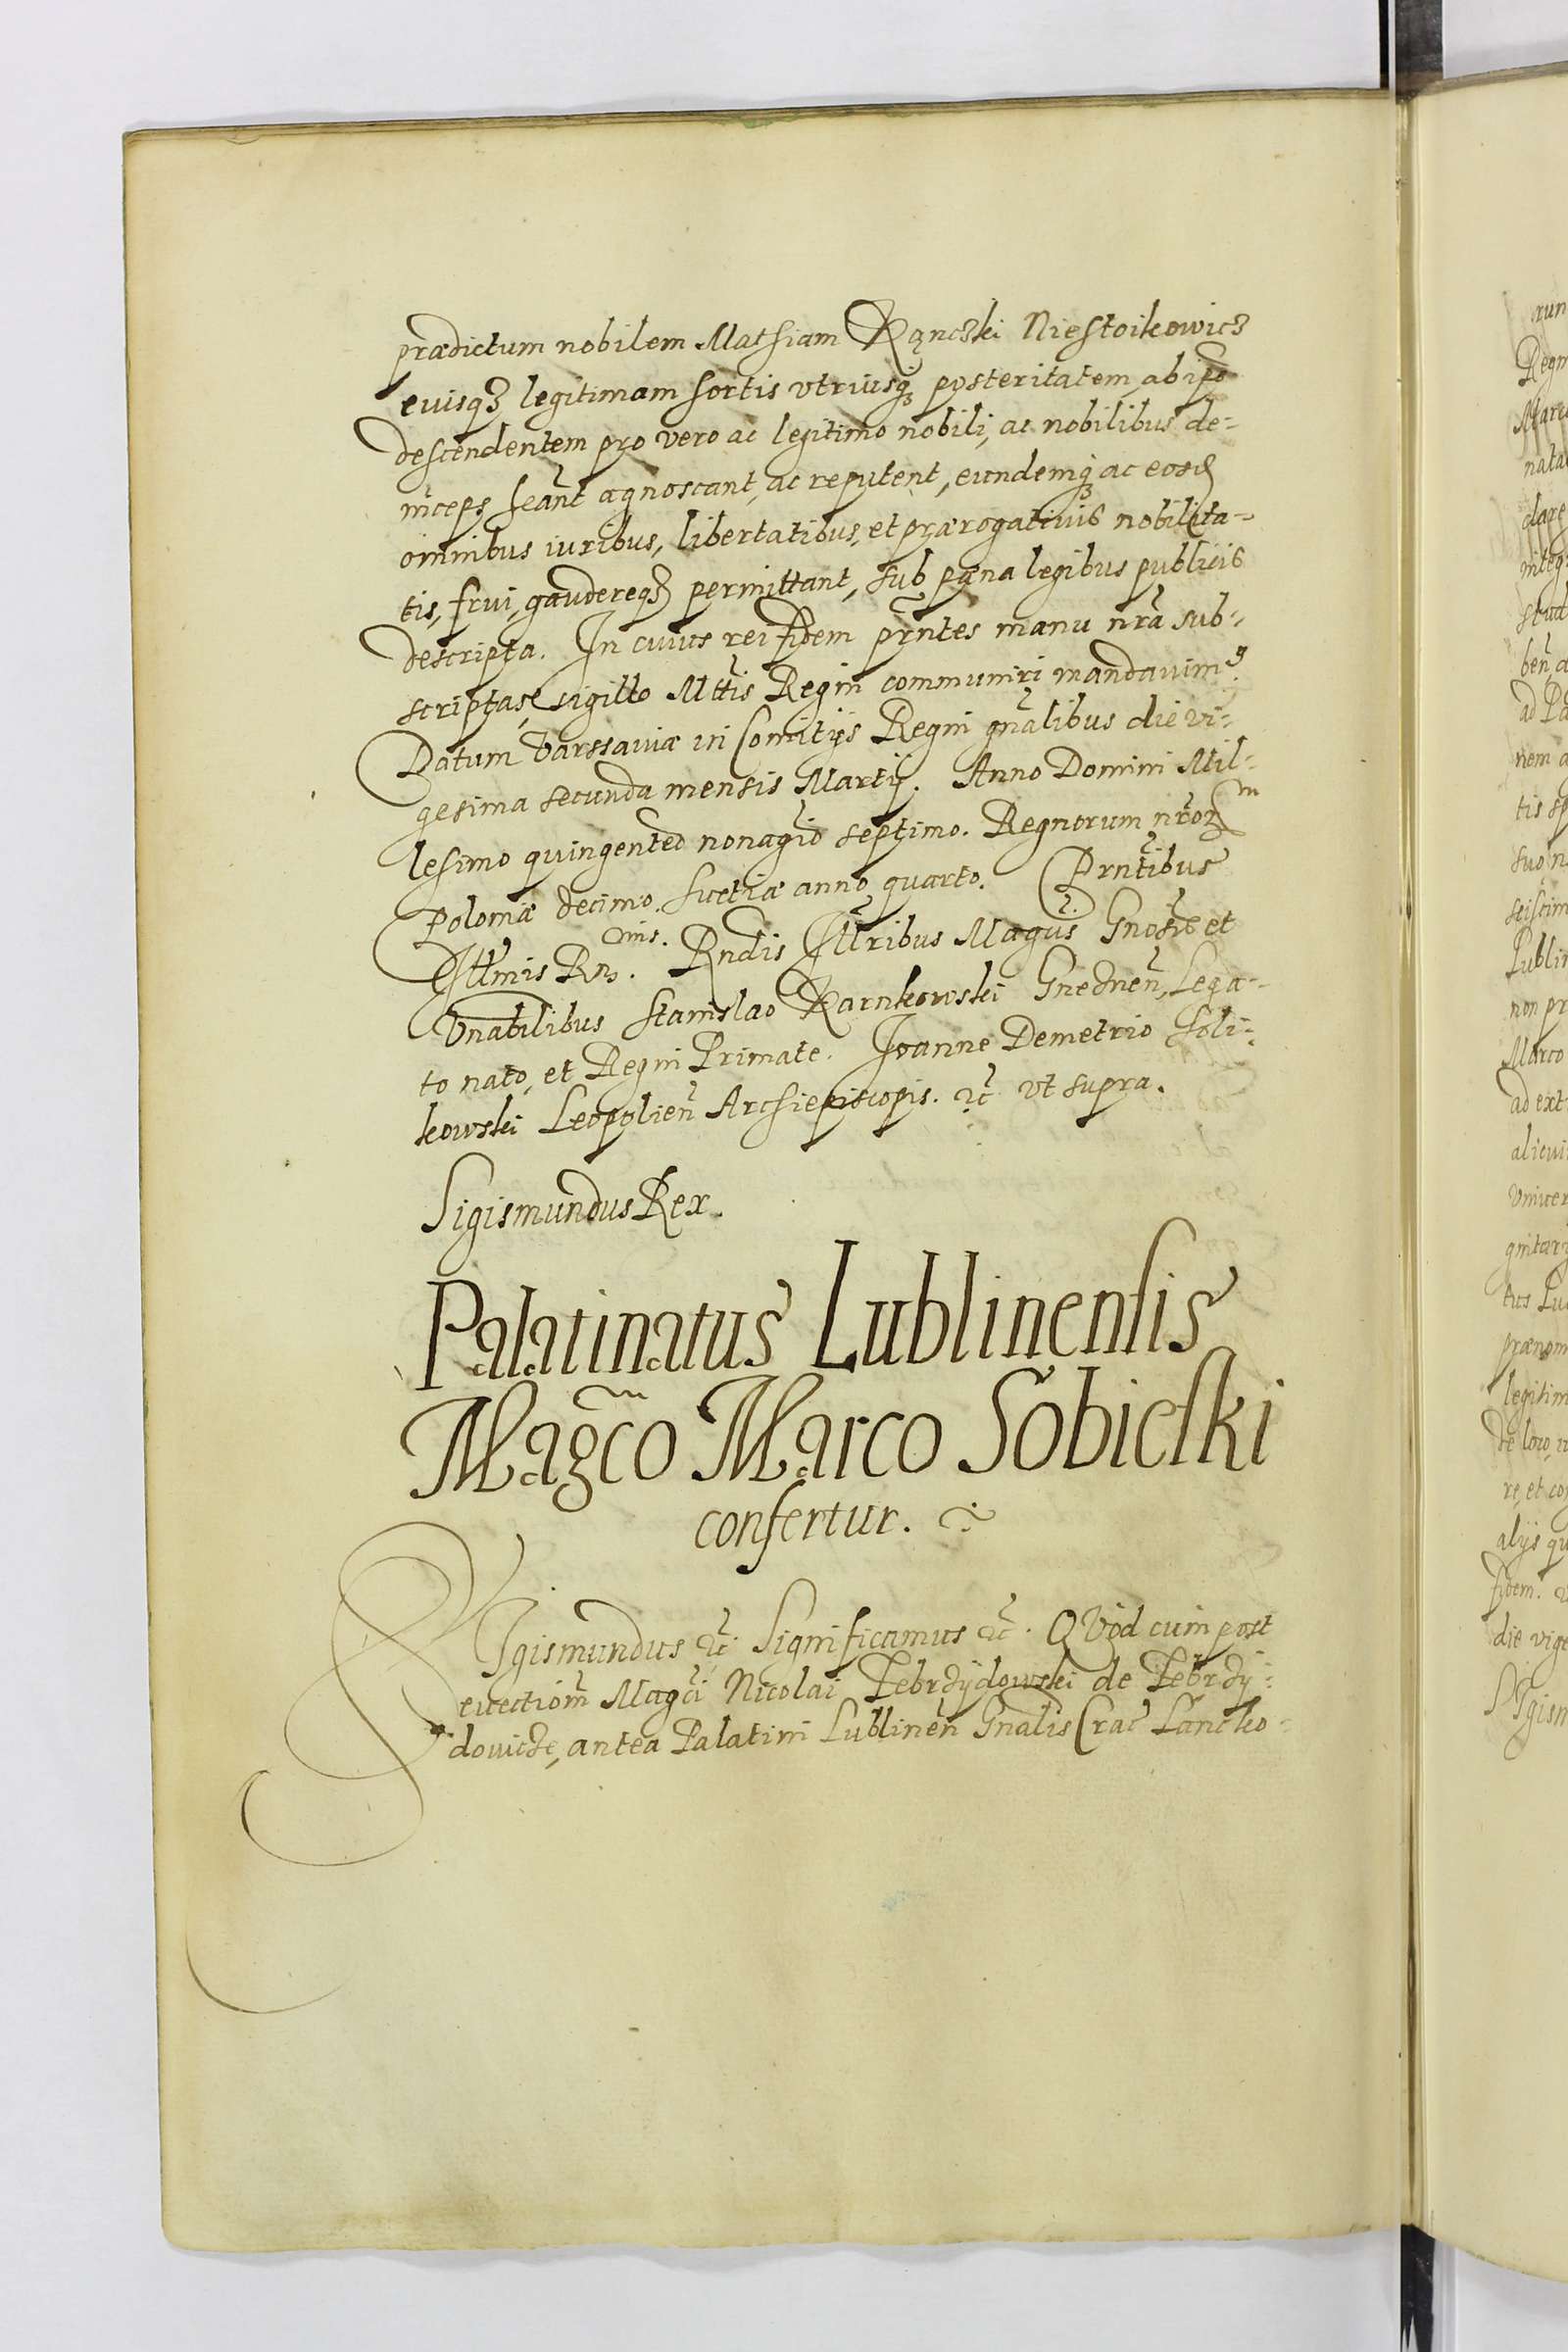 prædictum nobilem Mathiam Kączki Niestoikowicz
euisqз legitimam sortis vtriusqз posteritatem ab ipso
descendentem pro vero ac legitimo nobili, ac nobilibus de-
inceps heant agnoscant, ac reputent, eundemqз ac eosd
omnibus iuribus, libertatibus, et prærogatiuis nobilita-
tis, frui, gaudereqз permittant, sub pæna legibus publicis
descripta. In cuius rei fidem prntes manu nra sub-
scriptas, sigillo Mttis Regni communiri mandauimꝰ.
Datum Varssauiæ in Comitijs Regni gnalibus die vi-
gesima secunda mensis Martij. Anno Domini Mil-
lesimo quingenteo nonagio septimo. Regnorum nroꝝ
Poloniæ decimo. Suetiæ anno quarto. Prntibus
Illmis Rmis. Rndis Illribus Magcis Gnosis et
Vnabilibus Stanislao Karnkowski Gnednen, Lega-
to nato, et Regni Primate. Joanne Demetrio Soli-
kowski Leopolien Archiepiscopis. etc vt supra.
Sigismundus Rex.
Palatinatus Lublinensis
Magco Marco Sobieski
confertur.
SIgismundus etc. Significamus etc. QVod cum post
euectiom Magci Nicolai Zebrzÿdowski de Zebrzÿ-
douicze, antea Palatini Lublinen Gnalis Crac Lancko-
run
Regn
Marc
nata
clare
integ
stud
ben a
ad Pa
nem a
tis sp
suo n
Lublin
non pr
Marco
ad ext
alicui
Vniuer
gnitar
tus Lu
prænom
legitim
de loco
re, et co
alijs qu
fidem.
die vige
SIgism